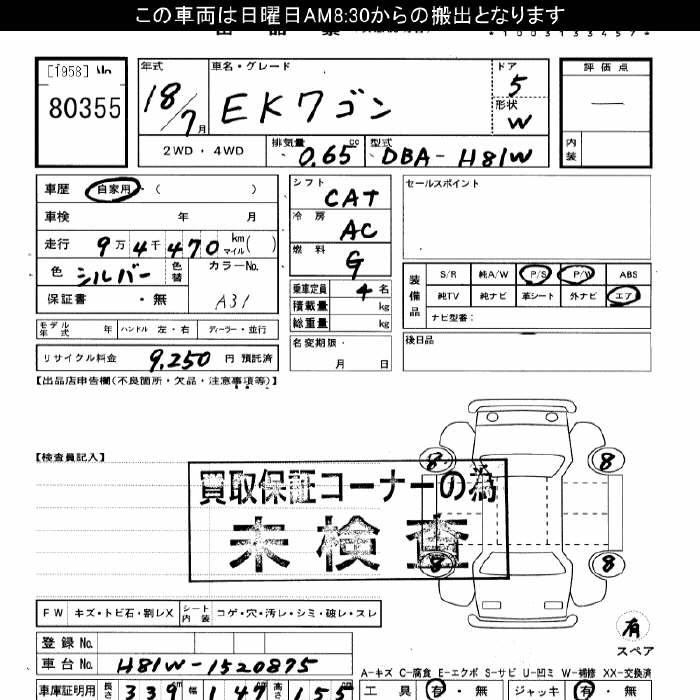 この車両は日曜日AM8:30からの搬出となります
*1003133457*
[1958] No
80355
年式 車名・グレード ドア 評価点
18/7月 EKワゴン 5
形状
W —
2WD・4WD 排気量 0.65 cc 型式 DBA-H81W 内装
車歴 自家用 ( )
車検 年 月
走行 9万4千470 km マイル( )
色 シルバー 色替 カラーNo.
保証書 ・無 A31
モデル年式 年 ハンドル 左・右 ディーラー・並行
リサイクル料金 9,250 円 預託済
シフト CAT
冷房 AC
燃料 G
乗車定員 4 名
積載量 kg
総重量 kg
名変期限・
月 日
セールスポイント
装備品 S/R 純A/W P/S P/W ABS
純TV 純ナビ 革シート 外ナビ エア
ナビ型番:
後日品
【出品店申告欄(不良箇所・欠品・注意事項等)】
【検査員記入】
買取保証コーナーの為
未検査
8 8
8 8
有
スペア
FW キズ・トビ石・割レX シート内装 コゲ・穴・汚レ・シミ・破レ・スレ
登録 No.
車台 No. H81W-1520875
A-キズ C-腐食 E-エクボ S-サビ U-凹ミ W-補修 XX-交換済
車庫証明用 長さ 339 幅 147 高さ 155
工具 有・無 ジャッキ 有・無